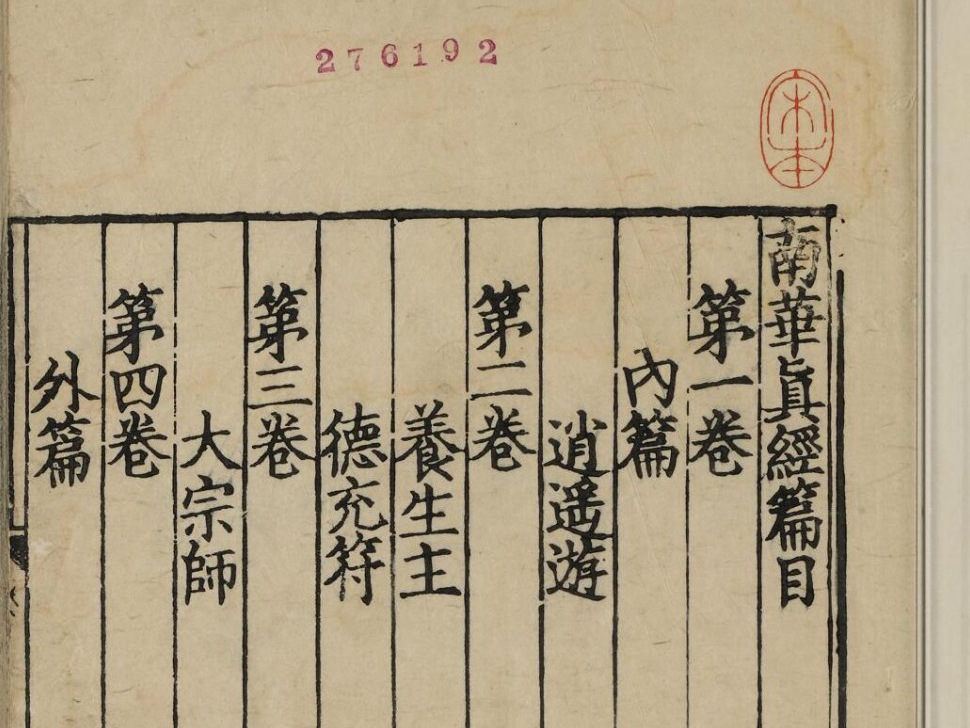 276192
南華眞經篇目
第一卷
內篇
逍遥遊
第二卷
養生主
德充符
第三卷
大宗師
第四卷
外篇